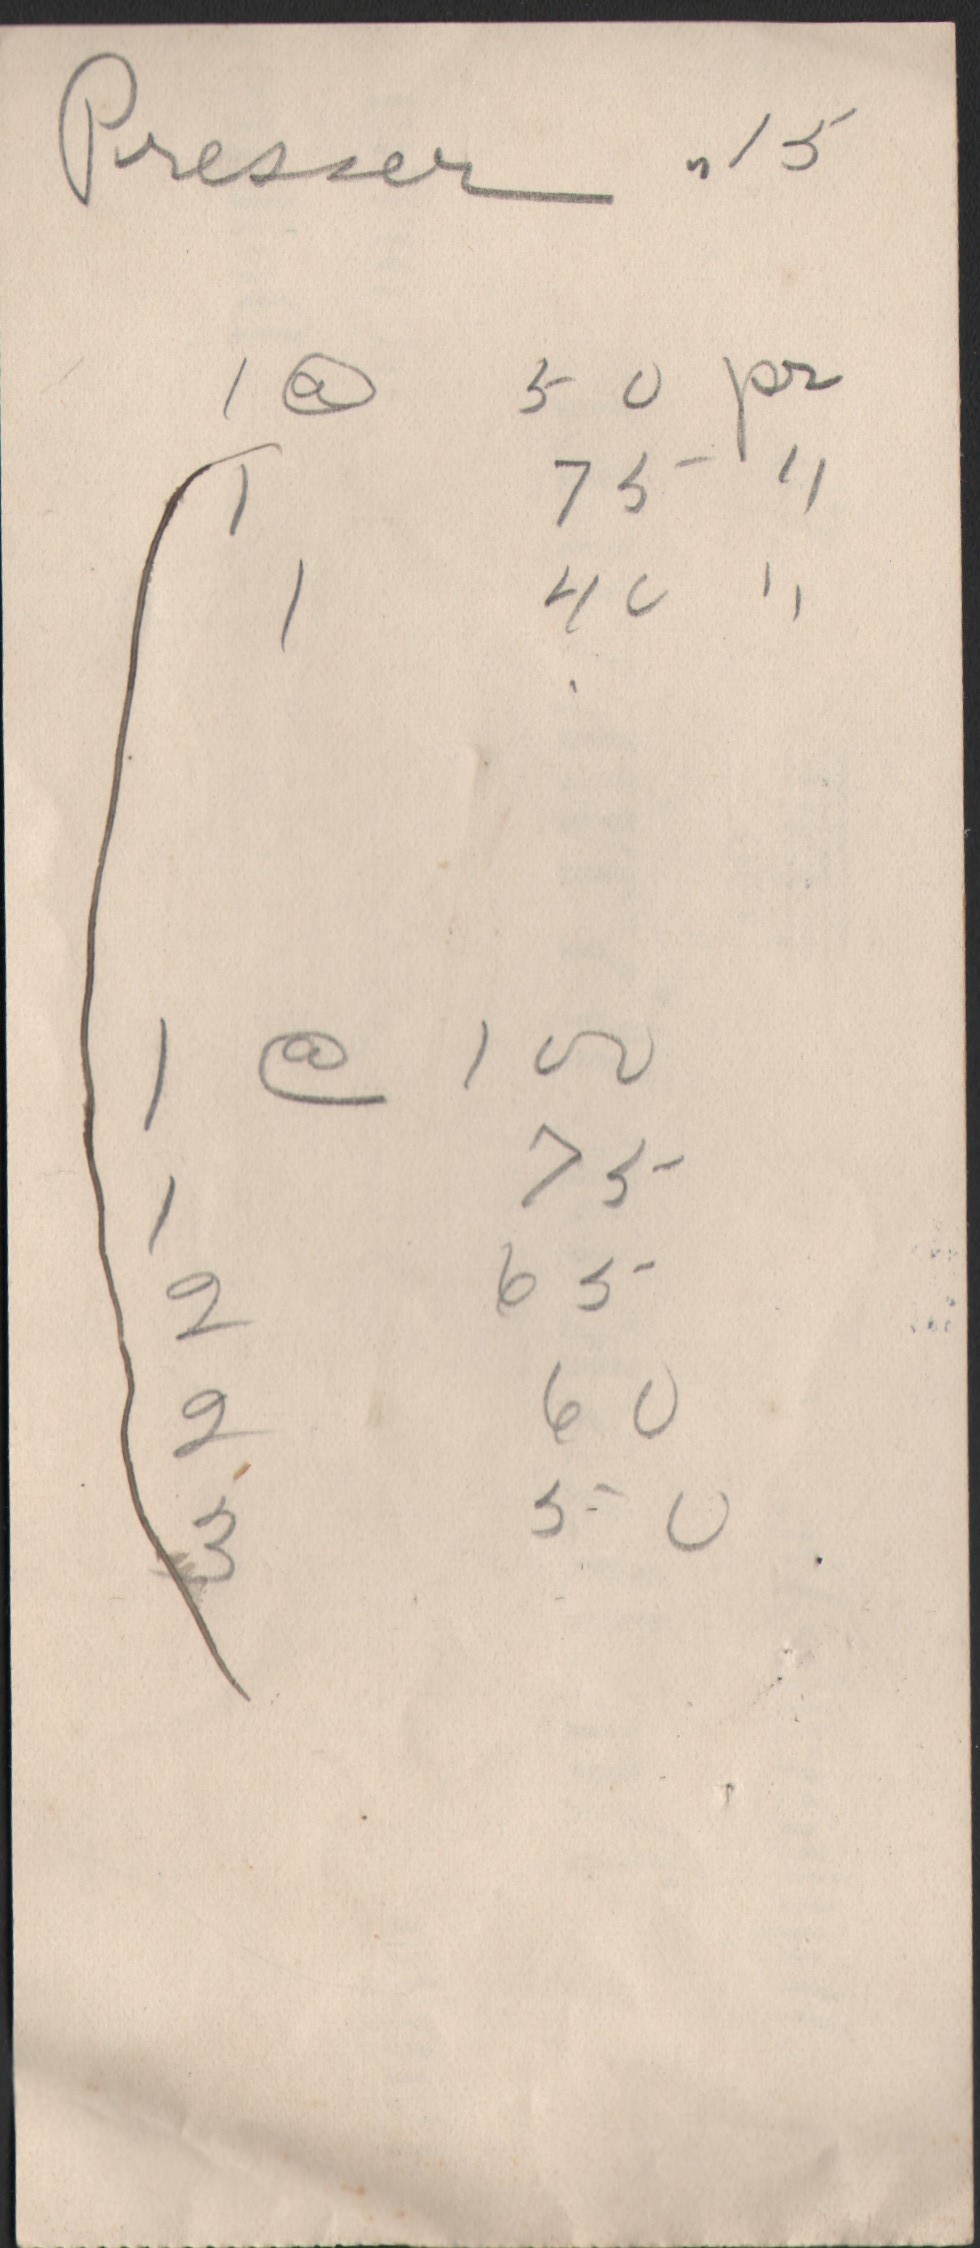 Presser .15
1 @ 50 pr
1 75 "
1 40 "
1 @ 100
1 75
2 65
2 60
3 50